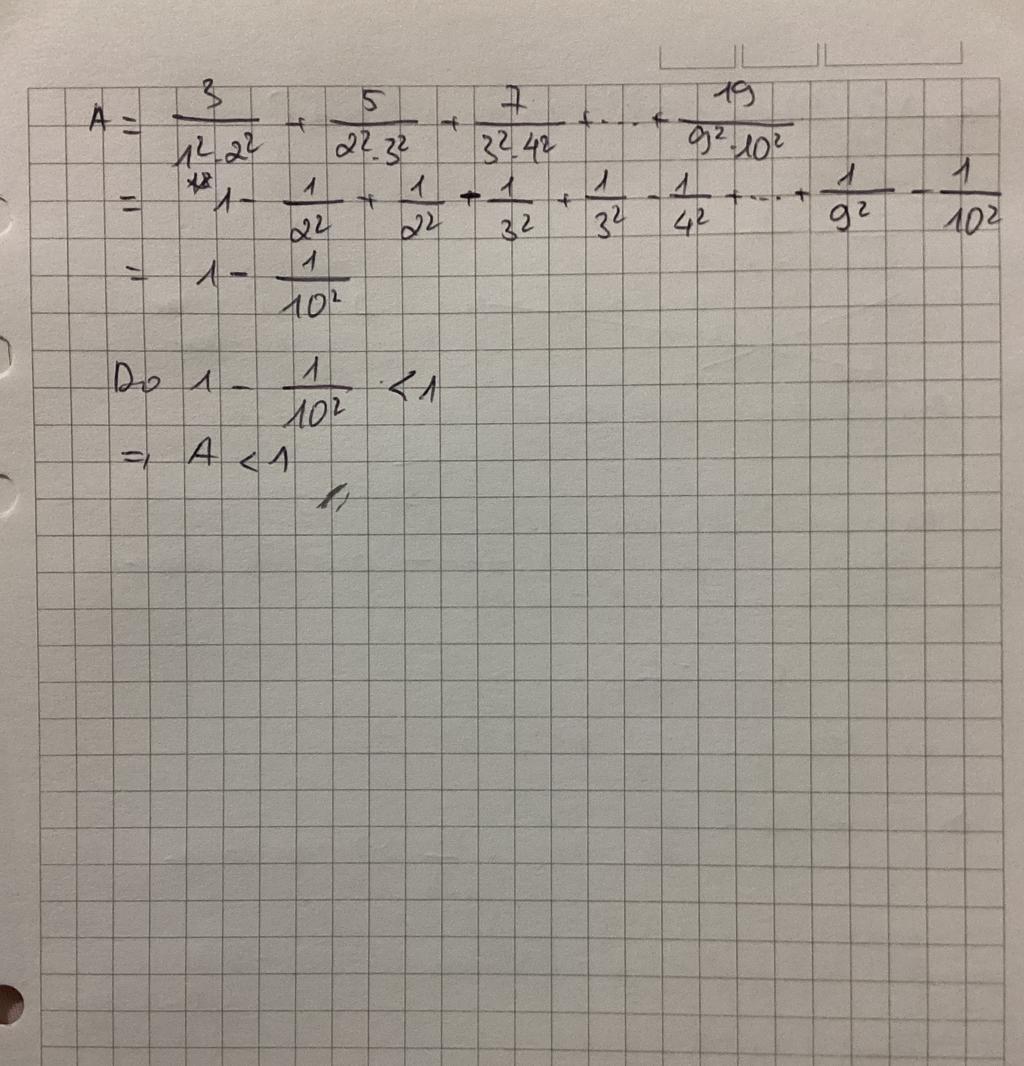 A = 3/(1².2²) + 5/(2².3²) + 7/(3².4²) + ... + 19/(9².10²)
= 1 - 1/2² + 1/2² - 1/3² + 1/3² - 1/4² + ... + 1/9² - 1/10²
= 1 - 1/10²
Do 1 - 1/10² < 1
=> A < 1